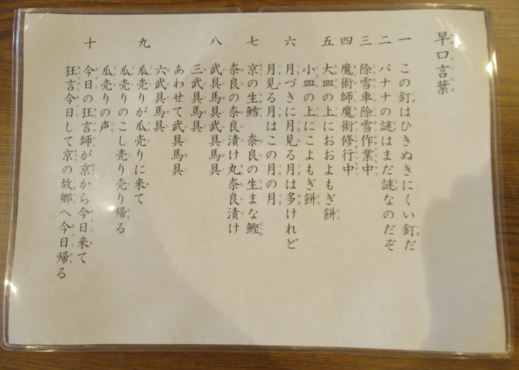 早口言葉
一 この釘はひきぬきにくい釘だ
二 バナナの謎はまだ謎なのだぞ
三 除雪車除雪作業中
四 魔術師魔術修行中
五 大皿の上におおよもぎ餅
小皿の上にこよもぎ餅
六 月づきに月見る月は多けれど
月見る月はこの月の月
七 京の生鱈 奈良の生まな鰹
奈良の奈良漬け丸奈良漬け
八 武具馬具武具馬具
三武具馬具
あわせて武具馬具
六武具馬具
九 瓜売りが瓜売りに来て
瓜売りのこし売り売り帰る
瓜売りの声
十 今日の狂言師が京から今日来て
狂言今日して京の故郷へ今日帰る